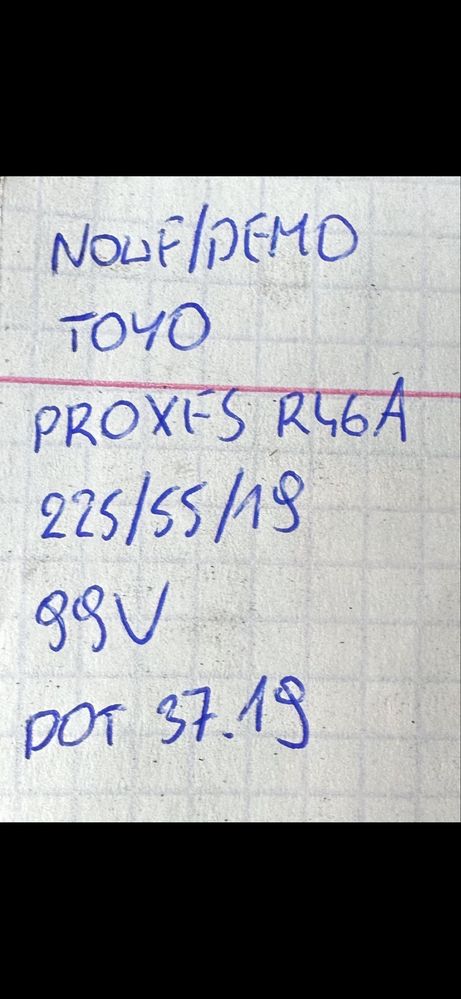 NOWE/DEMO
TOYO
PROXES R46A
225/55/19
99V
DOT 37.19